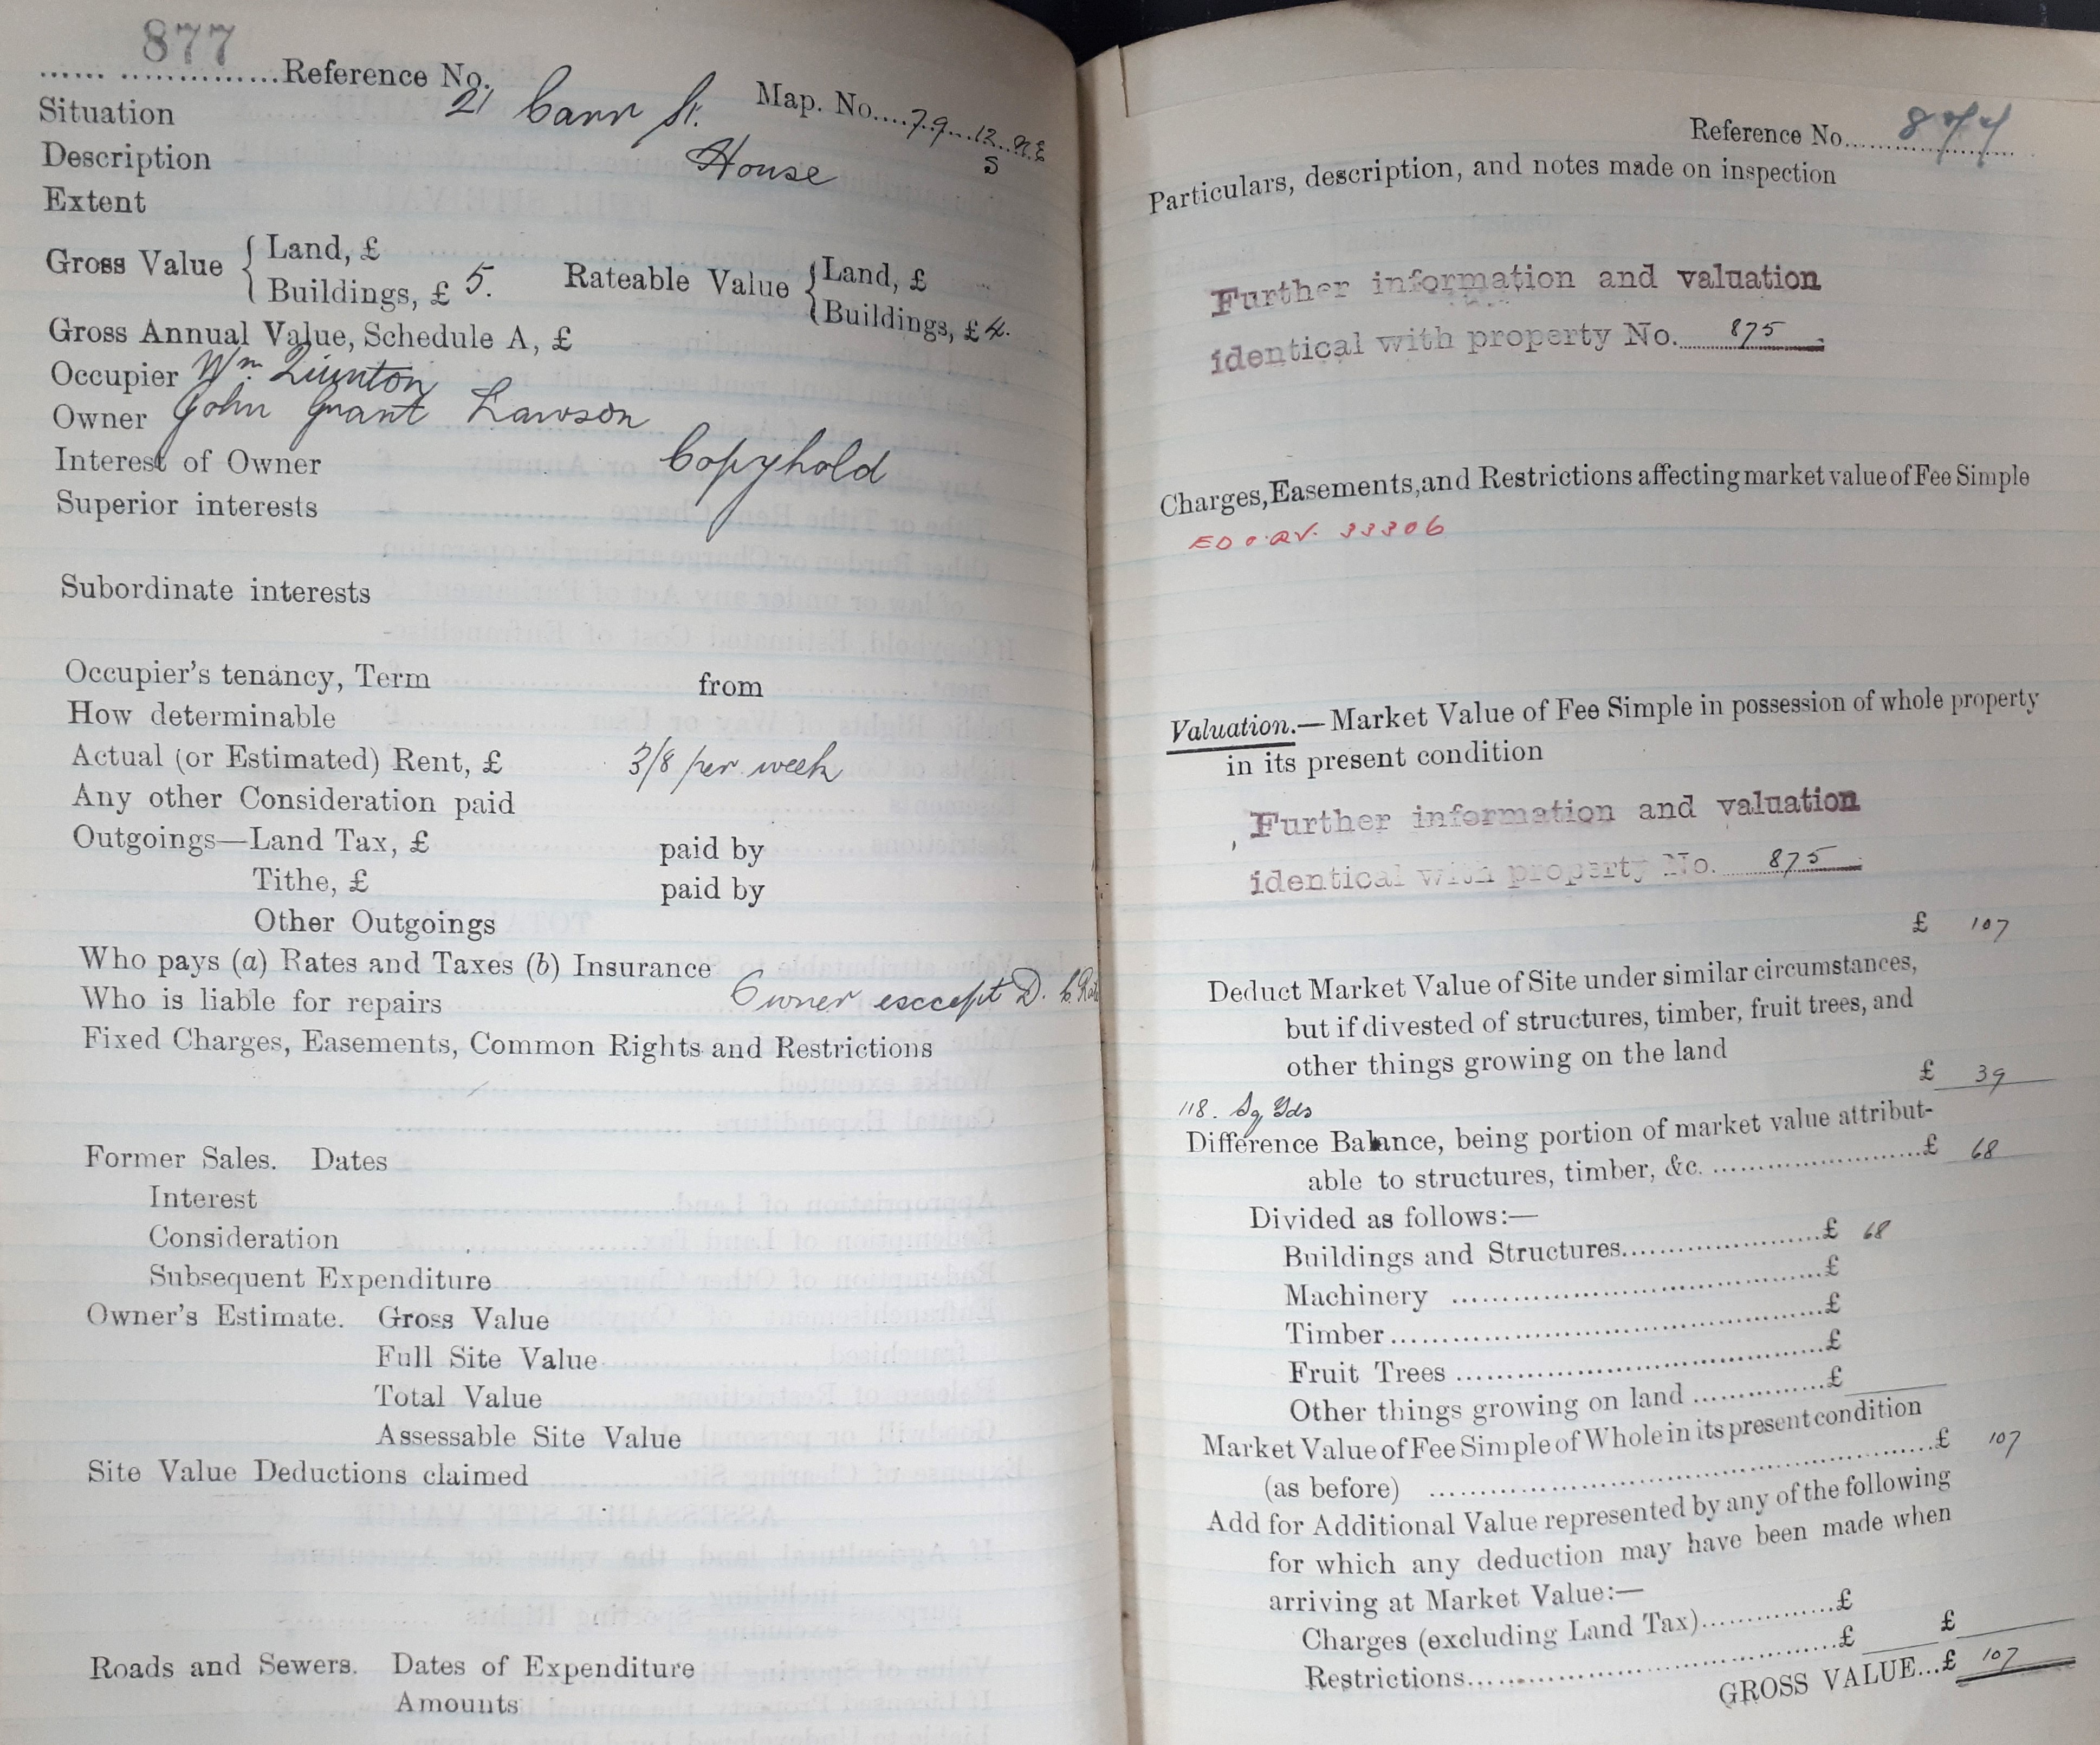 877
...... ..............Reference No.
Map. No....79...12..N.E
S
Situation 21 Carr St.
Description House
Extent
Gross Value { Land, £
Buildings, £ 5. Rateable Value { Land, £
Buildings, £ 4.
Gross Annual Value, Schedule A, £
Occupier Wm Quinton
Owner John Grant Lawson
Interest of Owner Copyhold
Superior interests
Subordinate interests
Occupier's tenancy, Term from
How determinable
Actual (or Estimated) Rent, £ 3/8 per week
Any other Consideration paid
Outgoings—Land Tax, £ paid by
Tithe, £ paid by
Other Outgoings
Who pays (a) Rates and Taxes (b) Insurance
Who is liable for repairs Owner except D. C. Rate
Fixed Charges, Easements, Common Rights and Restrictions
Former Sales. Dates
Interest
Consideration
Subsequent Expenditure
Owner's Estimate. Gross Value
Full Site Value
Total Value
Assessable Site Value
Site Value Deductions claimed
Roads and Sewers. Dates of Expenditure
Amounts
Reference No. 877
Particulars, description, and notes made on inspection
Further information and valuation
identical with property No. 875
Charges, Easements, and Restrictions affecting market value of Fee Simple
33306
Valuation.—Market Value of Fee Simple in possession of whole property
in its present condition
Further information and valuation
identical with property No. 875
£ 107
Deduct Market Value of Site under similar circumstances,
but if divested of structures, timber, fruit trees, and
other things growing on the land
£ 39
118. Sq Yds
Difference Balance, being portion of market value attribut-
able to structures, timber, &c. ..............................£ 68
Divided as follows:—
Buildings and Structures........................£ 68
Machinery ............................................£
Timber...................................................£
Fruit Trees ............................................£
Other things growing on land ...............£
Market Value of Fee Simple of Whole in its present condition
(as before) ............................................................£ 107
Add for Additional Value represented by any of the following
for which any deduction may have been made when
arriving at Market Value:—
Charges (excluding Land Tax)...............£
Restrictions...........................................£ £
GROSS VALUE...£ 107